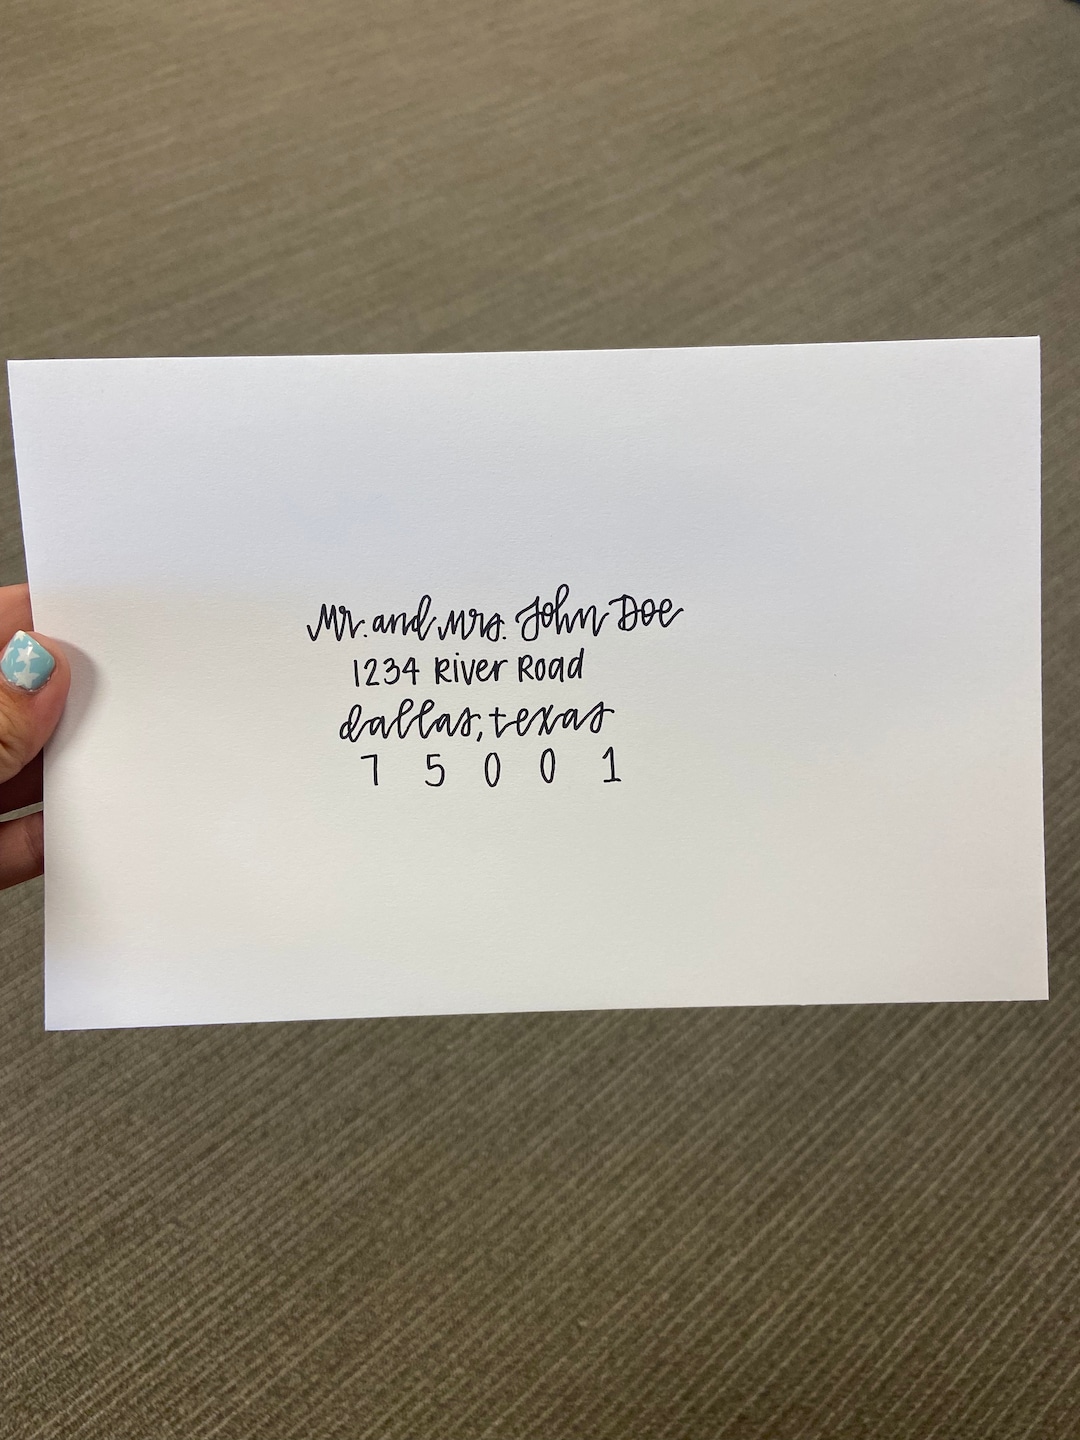 Mr. and Mrs. John Doe
1234 River Road
dallas, texas
7 5 0 0 1